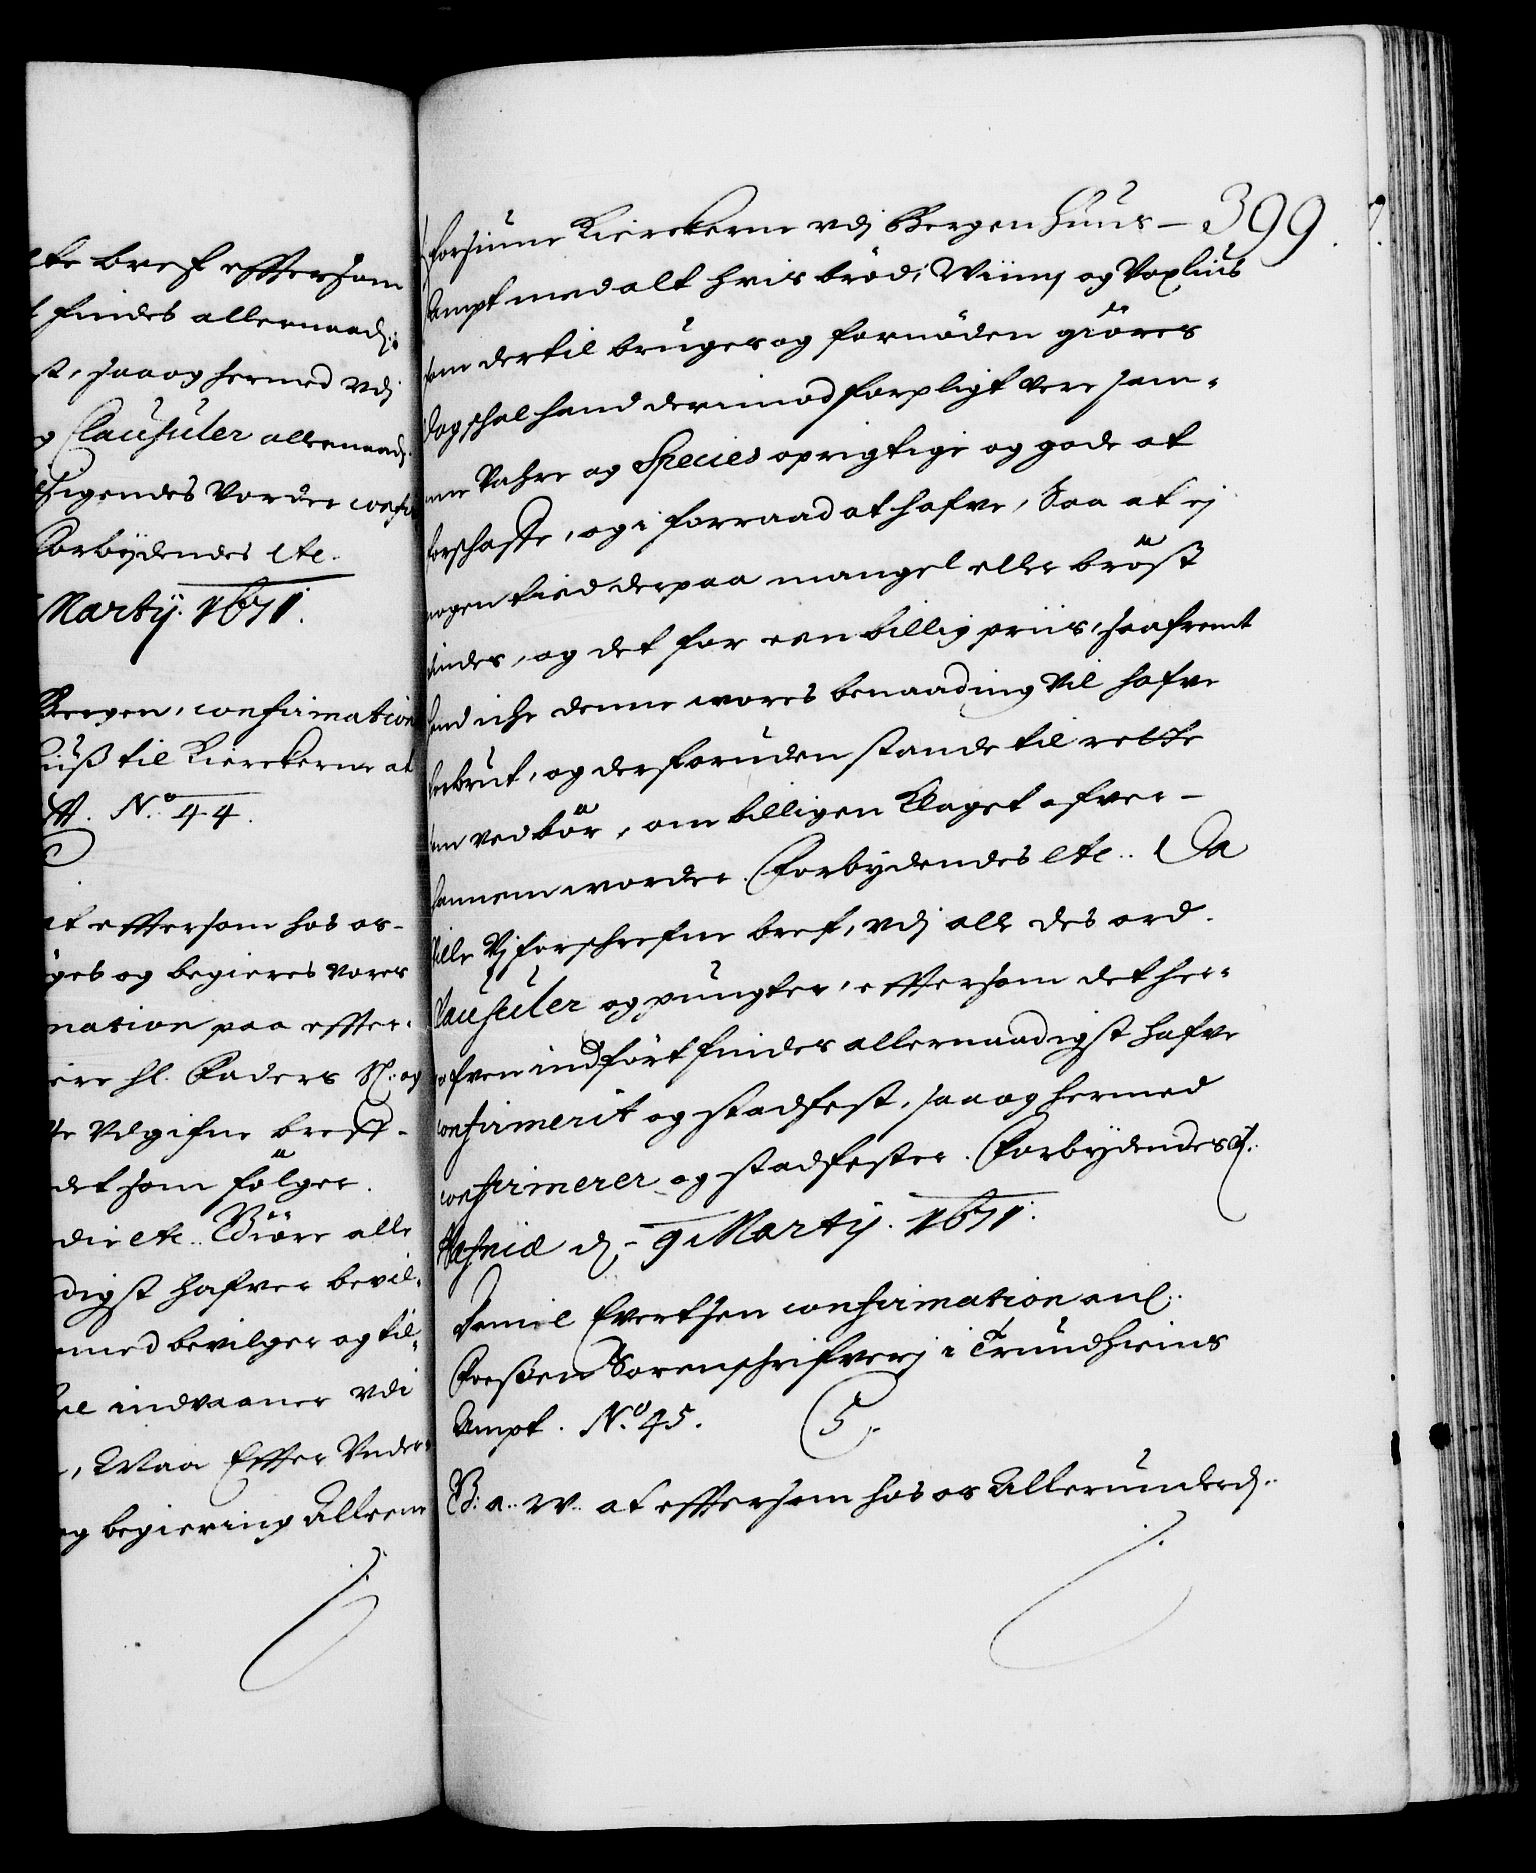 te bref efftersom
findes allernaad:
st, saa og hermed vdj
g Clausuler allernaad:
sigendes vorder confir
Forbydendes etc.
Martij. 1671.
Bergen, confirmation
huß til Kierckerne at
N.º 44.
at effersom hos os
ges og begieres vores
mation paa effter-
ere hl. Faders Sl: og
te Udgifne breff-
det som følger.
die etc.. Giøre alle
digst hafver bevil-
med bevilger og til-
indvaaner vdi
, Maa Effter Under-
og begiering Allern
399.
forsiune Kierckerne vdj Bergenhuus-
Ampt med alt hvis brød, Wiin, og Voxlius
som dertil bruges og fornøden giøres
Dog schal hand derimod forpligt vere sam-
me Vahre og Species oprigtige og gode at
forschaffe, og i forraad at hafve, Saa at ej
nogen tiid derpaa mangel eller brøst
findes, og det for een billig priis, saafremt
hand iche denne vores benaading Vil hafve
forbrut, og desforuden stande til rette
som vedbør, om billigen Klaget ofver-
hannem vorder. Forbydendes etc.. Da
Ville Vj forschrefne bref, vdj alle des ord.
Clausuler og pungter, effersom det her-
ofven indført findes allernaadigst hafve
confirmerit og stadfest, saa og hermed
confirmerer og stadfester. Forbydendes etc:
Hafniæ d. 9 Martij. 1671.
Daniel Evertsen confirmation anl:
Foeßen Sorenschrifverj i Trundhiems
Ampt. N.º 45. 5.
G: a.. w.. at effersom hos os Allerunderd: